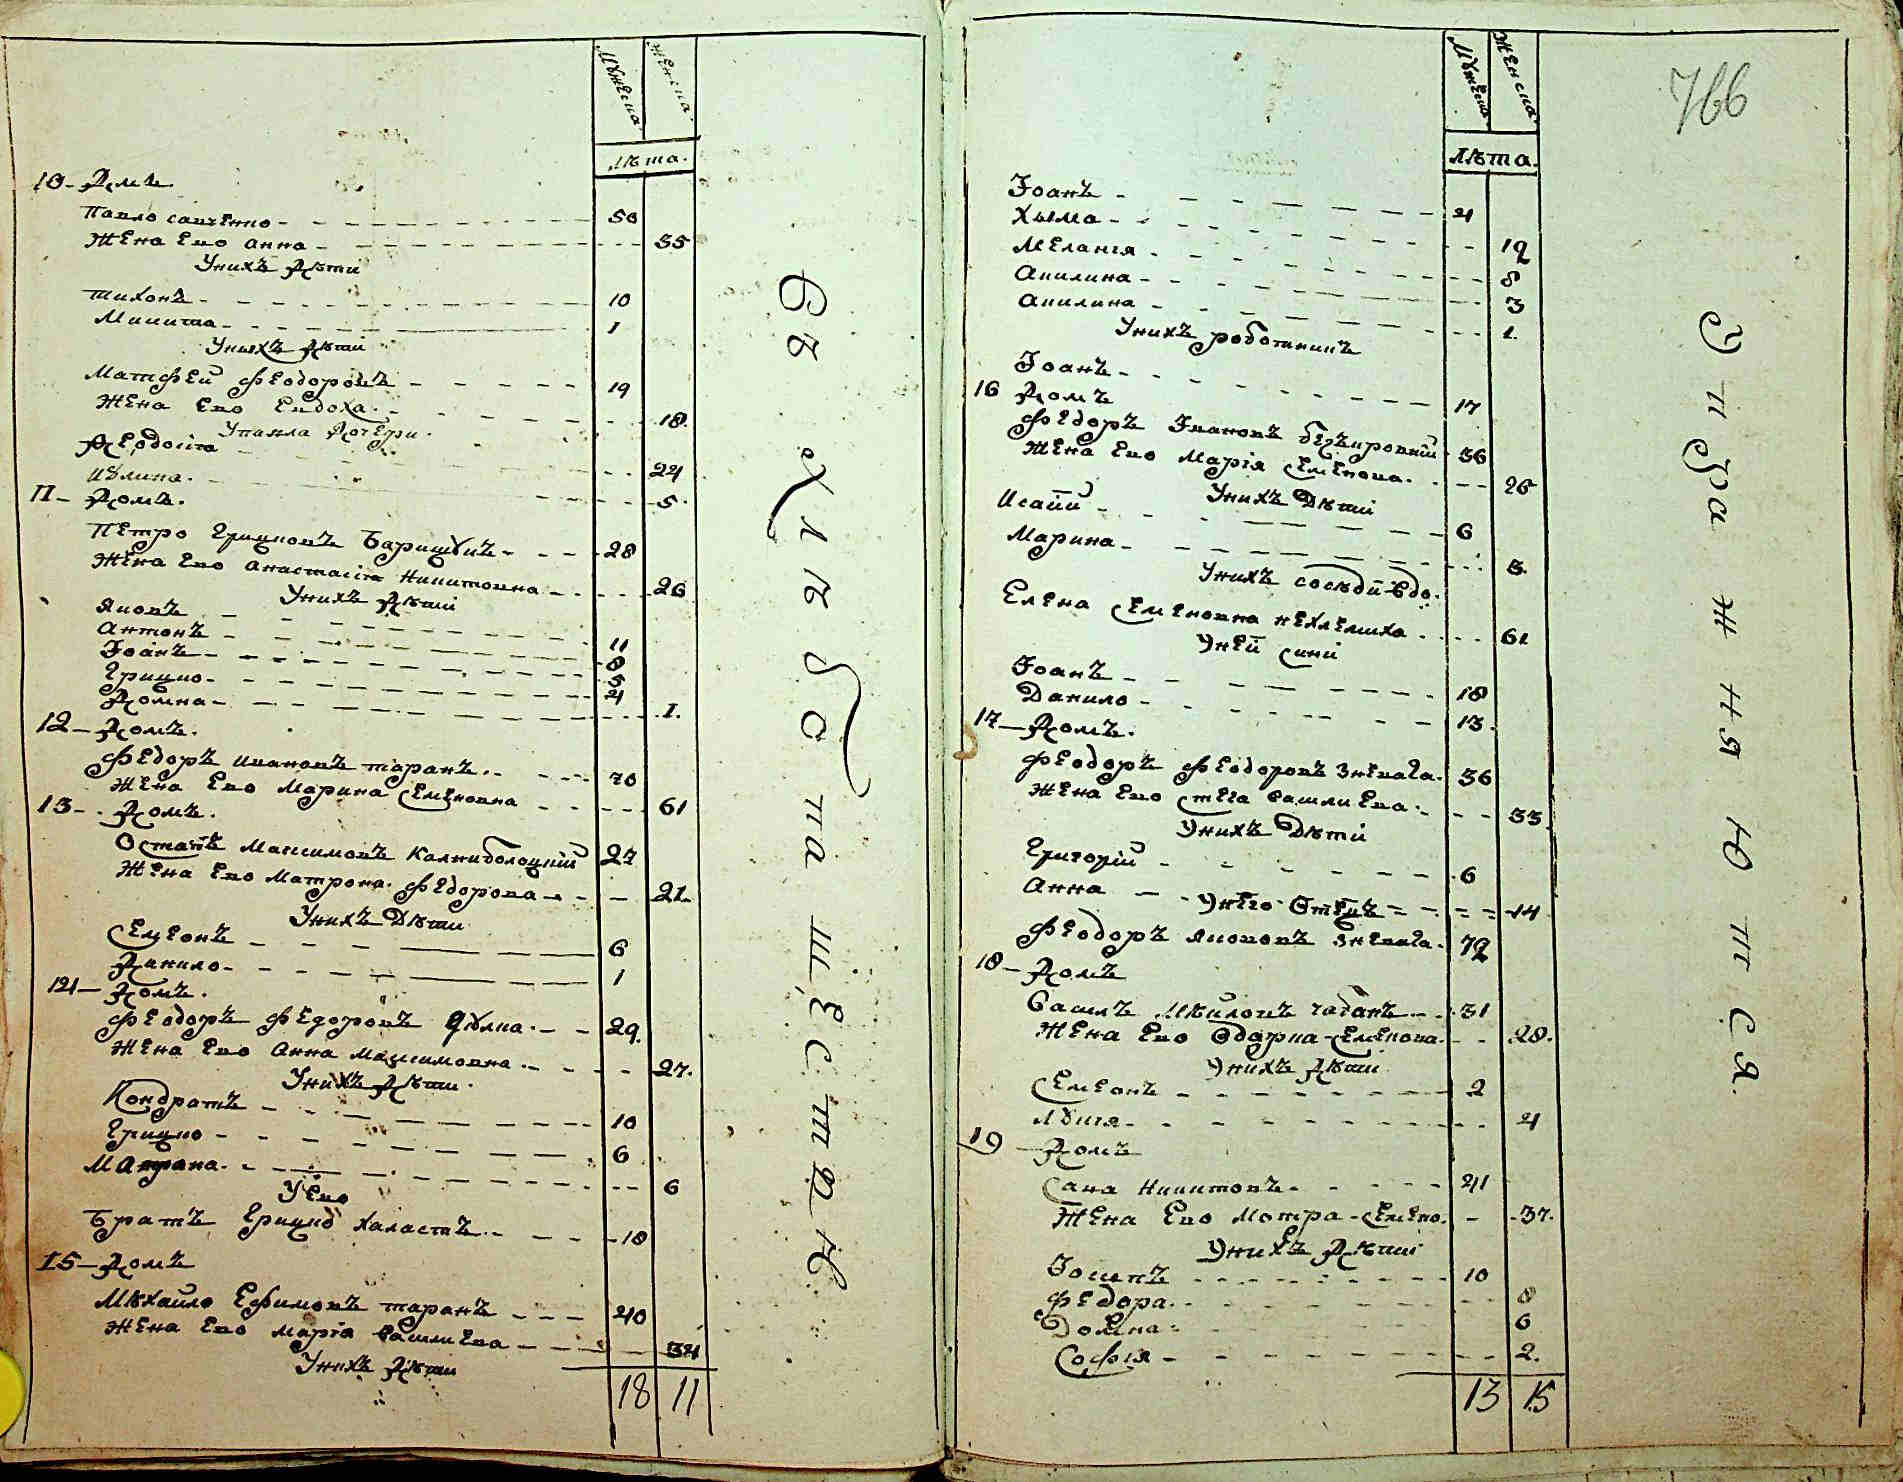 Мужеска
Женска
Лѣта.
10- Домъ.
Павло савченко - 50
Жена Его Анна - 35
Унихъ Дѣти
Тихонъ - 10
Микита - 1
Унихъ Дѣти
Матфей Феодоровъ - 19
Жена Его Евдоха - 18
Упавла Дочери.
Феодосія - 24
5.
11- Домъ.
Петро Грицковъ - 28
Жена Его Анастасія Никитовна - 26
Унихъ Дѣти
Яковъ - 11
Антонъ - 8
Іоанъ - 5
Грицко - 4
Домна - 1.
12- Домъ.
Федоръ Ивановъ таранъ - 70
Жена Его Марина Семеновна - 61
13- Домъ.
Остапъ Максимовъ Калниболоцкій 27
Жена Его Матрона Федорова - 21.
Унихъ Дѣти
Симеонъ - 6
Данило - 1
14- Домъ.
Феодоръ Федоровъ - 29.
Жена Его Анна Максимовна - 27.
Унихъ Дѣти.
Кондратъ - 10
Грицко - 6
Матрона - 6
У Его
Братъ Грицко Халастъ - 18
15- Домъ
Михайло Ефимовъ таранъ - 40
Жена Его Марія василиева - 34
Унихъ Дѣти
18 11
въ
Хлѣбопашествѣ
Мужеска
Женска
Лѣта.
766
Іоанъ - 4
Хыма - 12
Меланія - 8
Акилина - 3
Акилина - 1.
Унихъ работникъ
Іоанъ - 17
16 Домъ
Федоръ Івановъ 36
Жена Его Марія Семенова - 26
Унихъ Дѣти
Исаій - 6
Марина - 3.
Унихъ сосѣди вдо.
Елена Семеновна - 61
Уней сини
Іоанъ - 18
Данило - 13.
17- Домъ.
Феодоръ Феодоровъ 36
Жена Его василиева - 33
Унихъ Дѣти
Григорій - 6
Анна - 14
Унего Отецъ
Феодоръ Якововъ 72
18- Домъ
Василь чабанъ - 31
Жена Его Одарка Семенова - 28.
Унихъ Дѣти
Симеонъ - 2
4
19 Домъ
Сава Никитовъ - 41
Жена Его Мотра Семено. - 37.
Унихъ Дѣти
Іосипъ - 10
Федора - 8
Домна - 6
Софія - 2.
13 15
Упражняются.